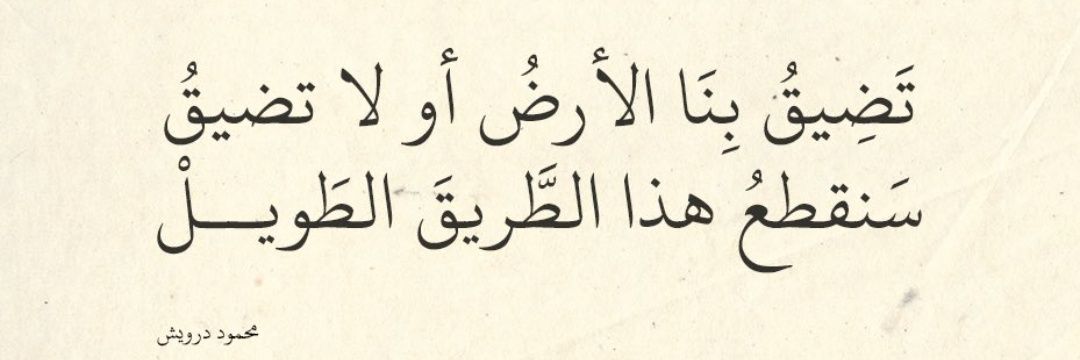 تَضِيقُ بِنَا الأرضُ أو لا تضيقُ
سَنقطعُ هذا الطَّريقَ الطَويـــلْ
محمود درويش